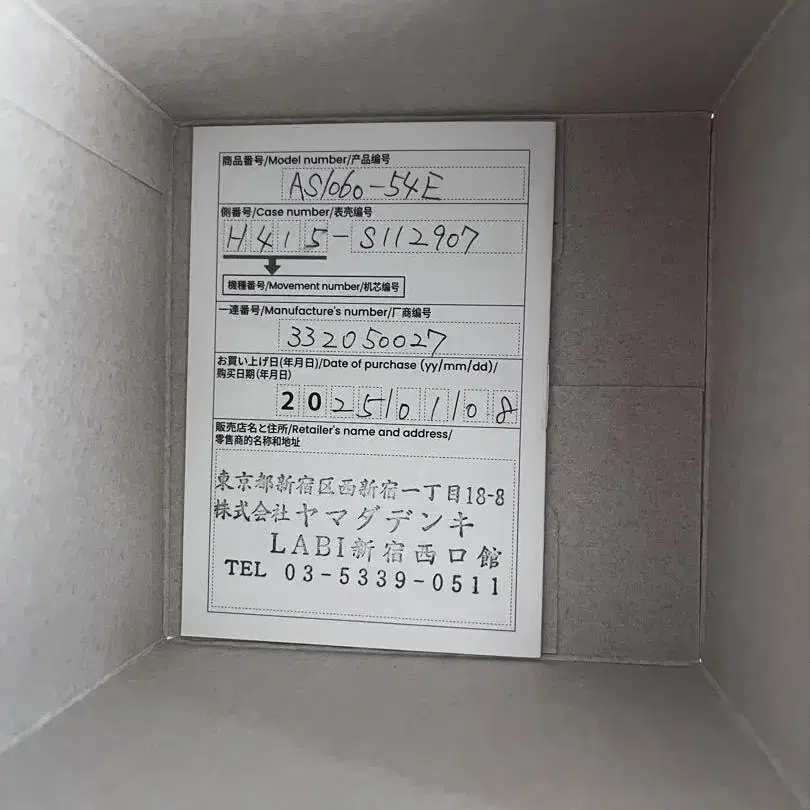 商品番号/Model number/产品编号
AS1060-54E
側番号/Case number/表壳编号
H415-S112907
機種番号/Movement number/机芯编号
一連番号/Manufacture's number/厂商编号
332050027
お買い上げ日(年月日)/Date of purchase (yy/mm/dd)/
购买日期(年月日)
2025/01/08
販売店名と住所/Retailer's name and address/
零售商的名称和地址
東京都新宿区西新宿一丁目18-8
株式会社ヤマダデンキ
LABI新宿西口館
TEL 03-5339-0511